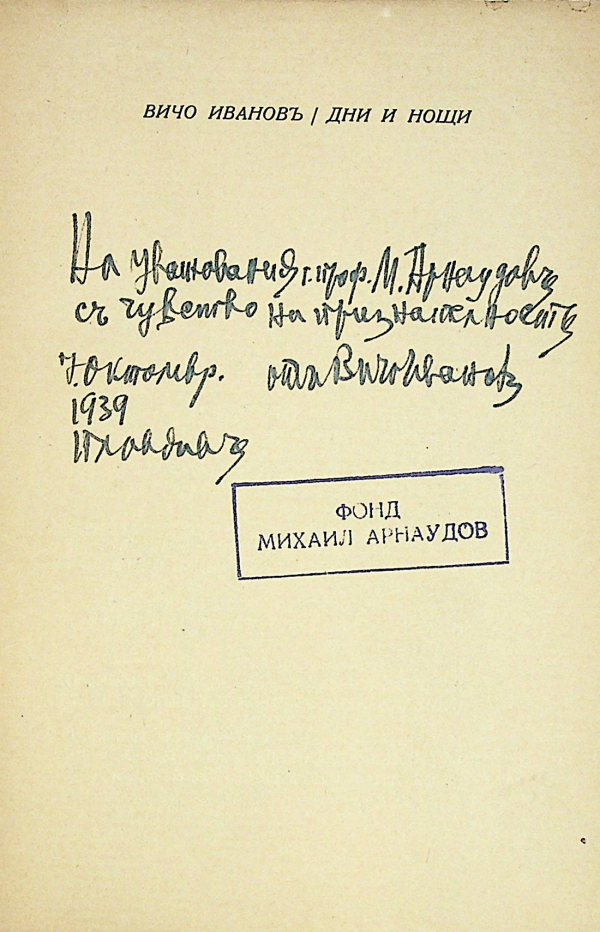 ВИЧО ИВАНОВЪ / ДНИ И НОЩИ
На уважования г. проф. М. Арнаудовъ
съ чувство на признателность
7. Октомвр. отъ Вичо Ивановъ
1939
Пловдивъ
ФОНД
МИХАИЛ АРНАУДОВ